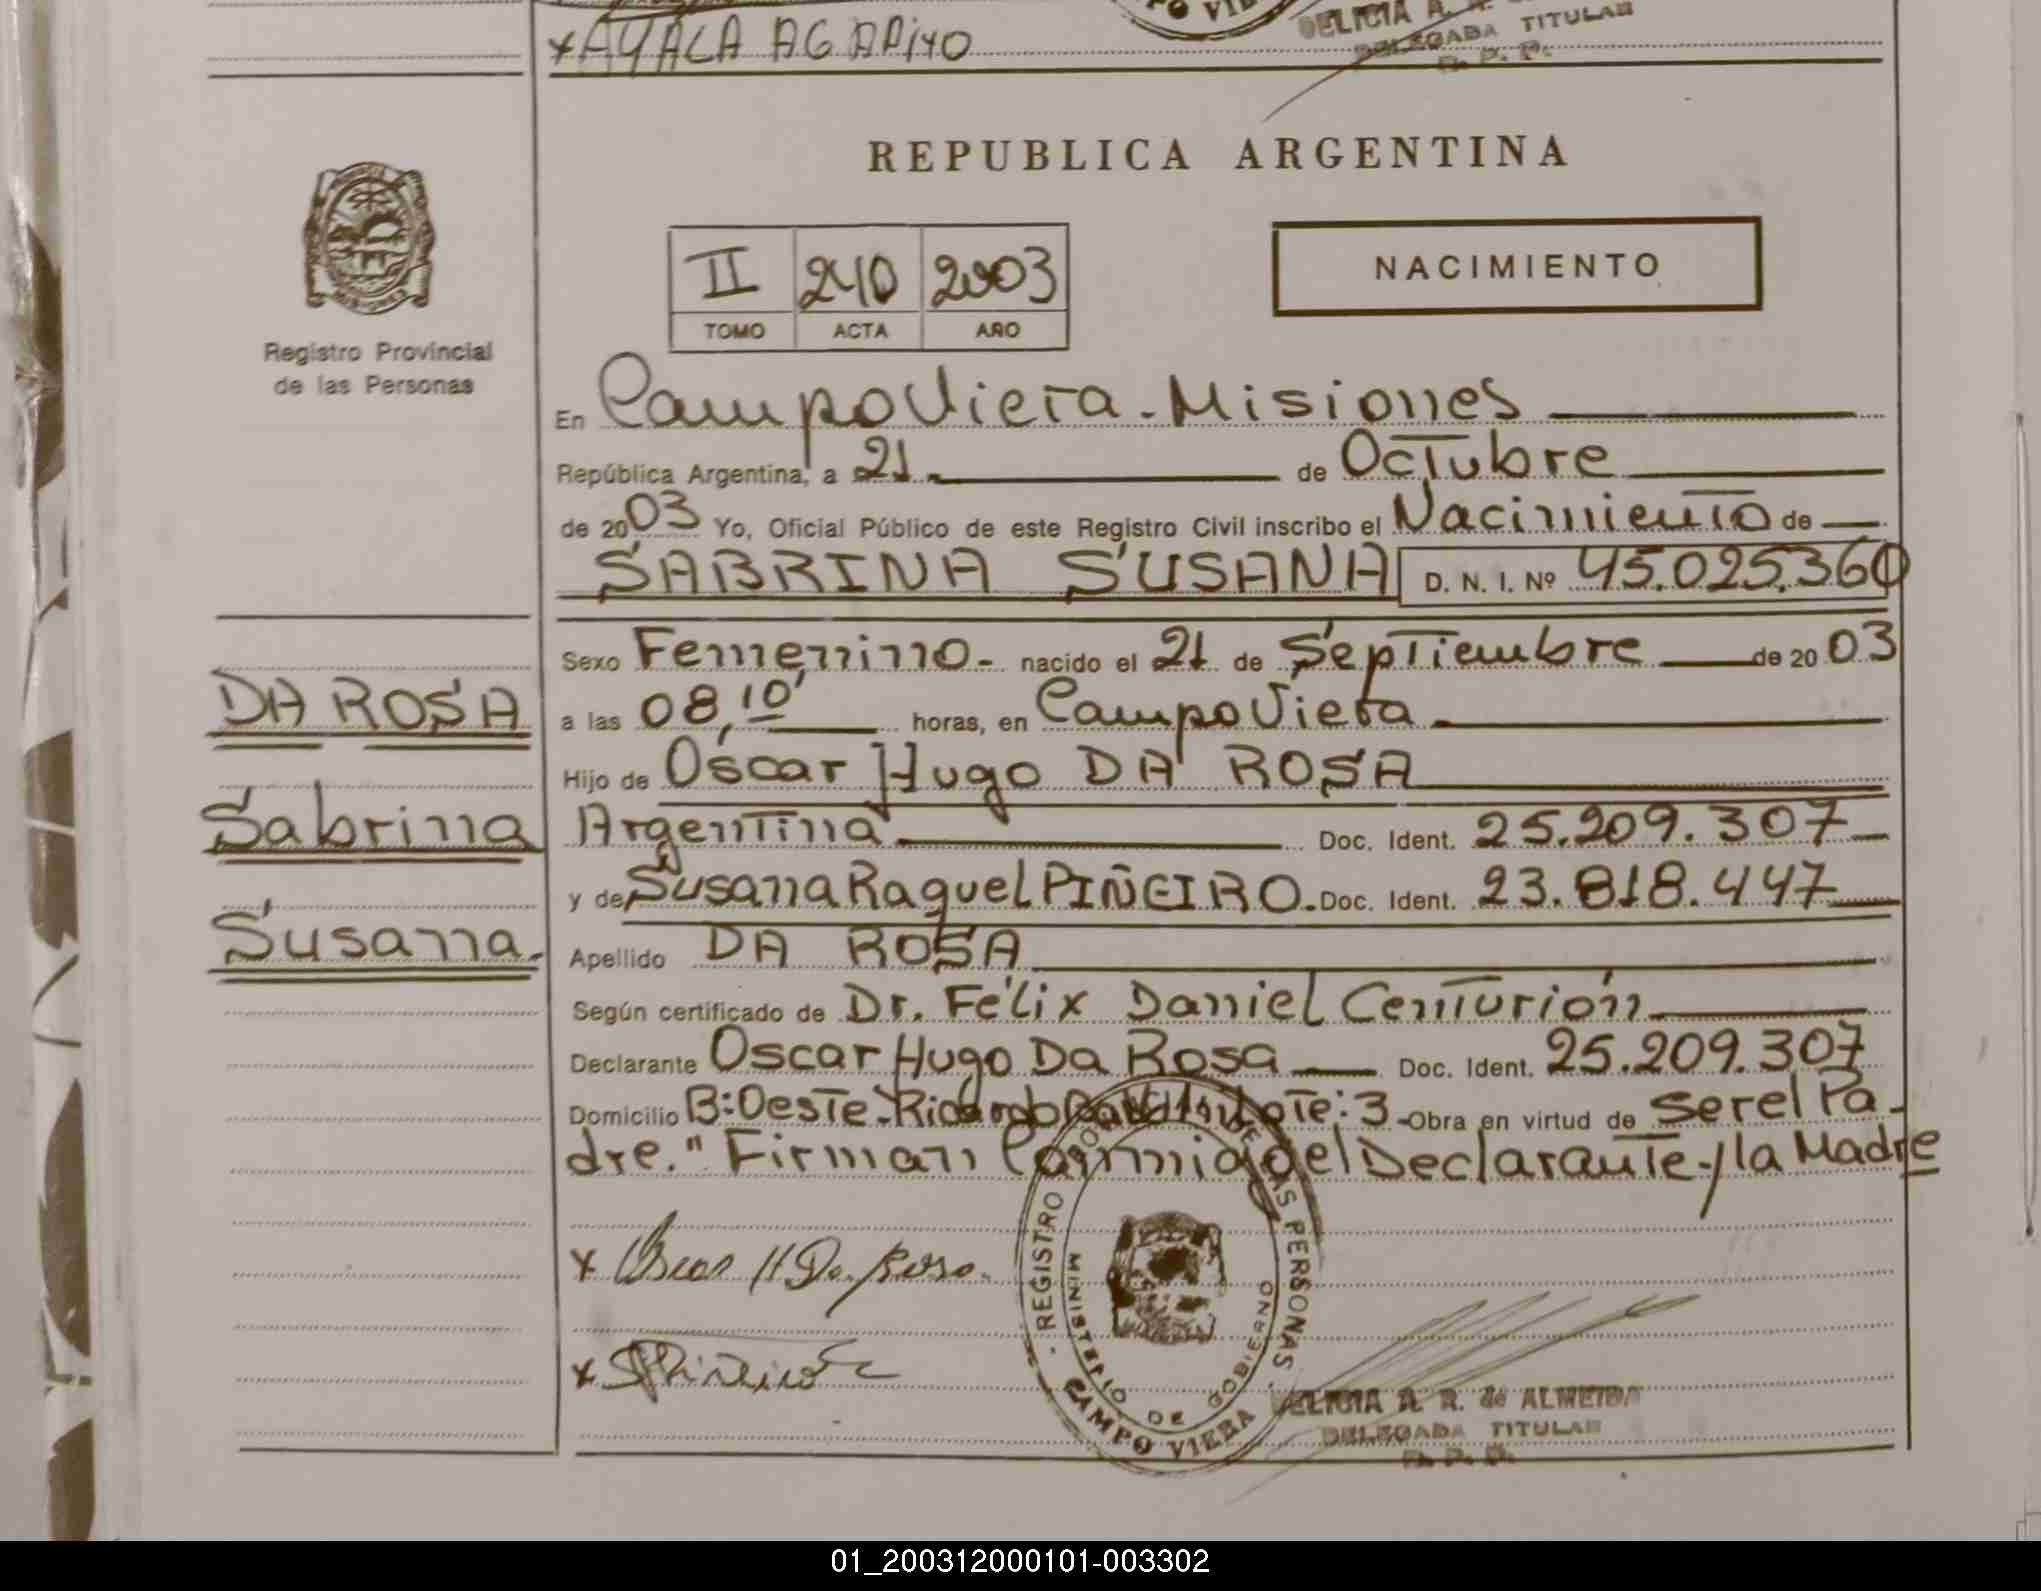 x AYALA AGAPITO
DELICIA A. R.
DELEGADA TITULAR
R. P. P.
REPUBLICA ARGENTINA
II 240 2003
TOMO ACTA AÑO
NACIMIENTO
Registro Provincial
de las Personas
En Campo Viera - Misiones
República Argentina, a 21 de Octubre
de 2003 Yo, Oficial Público de este Registro Civil inscribo el Nacimiento de
SABRINA SUSANA D. N. I. Nº 45.025.360
Sexo Femenino - nacido el 21 de Septiembre de 2003
a las 08,10' horas, en Campo Viera
Hijo de Oscar Hugo DA ROSA
Argentina Doc. Ident. 25.209.307
y de Susana Raquel PIÑEIRO. Doc. Ident. 23.818.447
Apellido DA ROSA
Según certificado de Dr. Félix Daniel Centurión
Declarante Oscar Hugo Da Rosa Doc. Ident. 25.209.307
Domicilio B: Oeste - Ricardo Lote: 3 - Obra en virtud de ser el Pa-
dre." Firman Conmigo el Declarante y la Madre
DA ROSA
Sabrina
Susana.
x Oscar H Da Rosa.
x Piñeiro
REGISTRO DE LAS PERSONAS
MINISTERIO DE GOBIERNO
CAMPO VIERA
DELICIA A. R. de ALMEIDA
DELEGADA TITULAR
R. P. P.
01_200312000101-003302